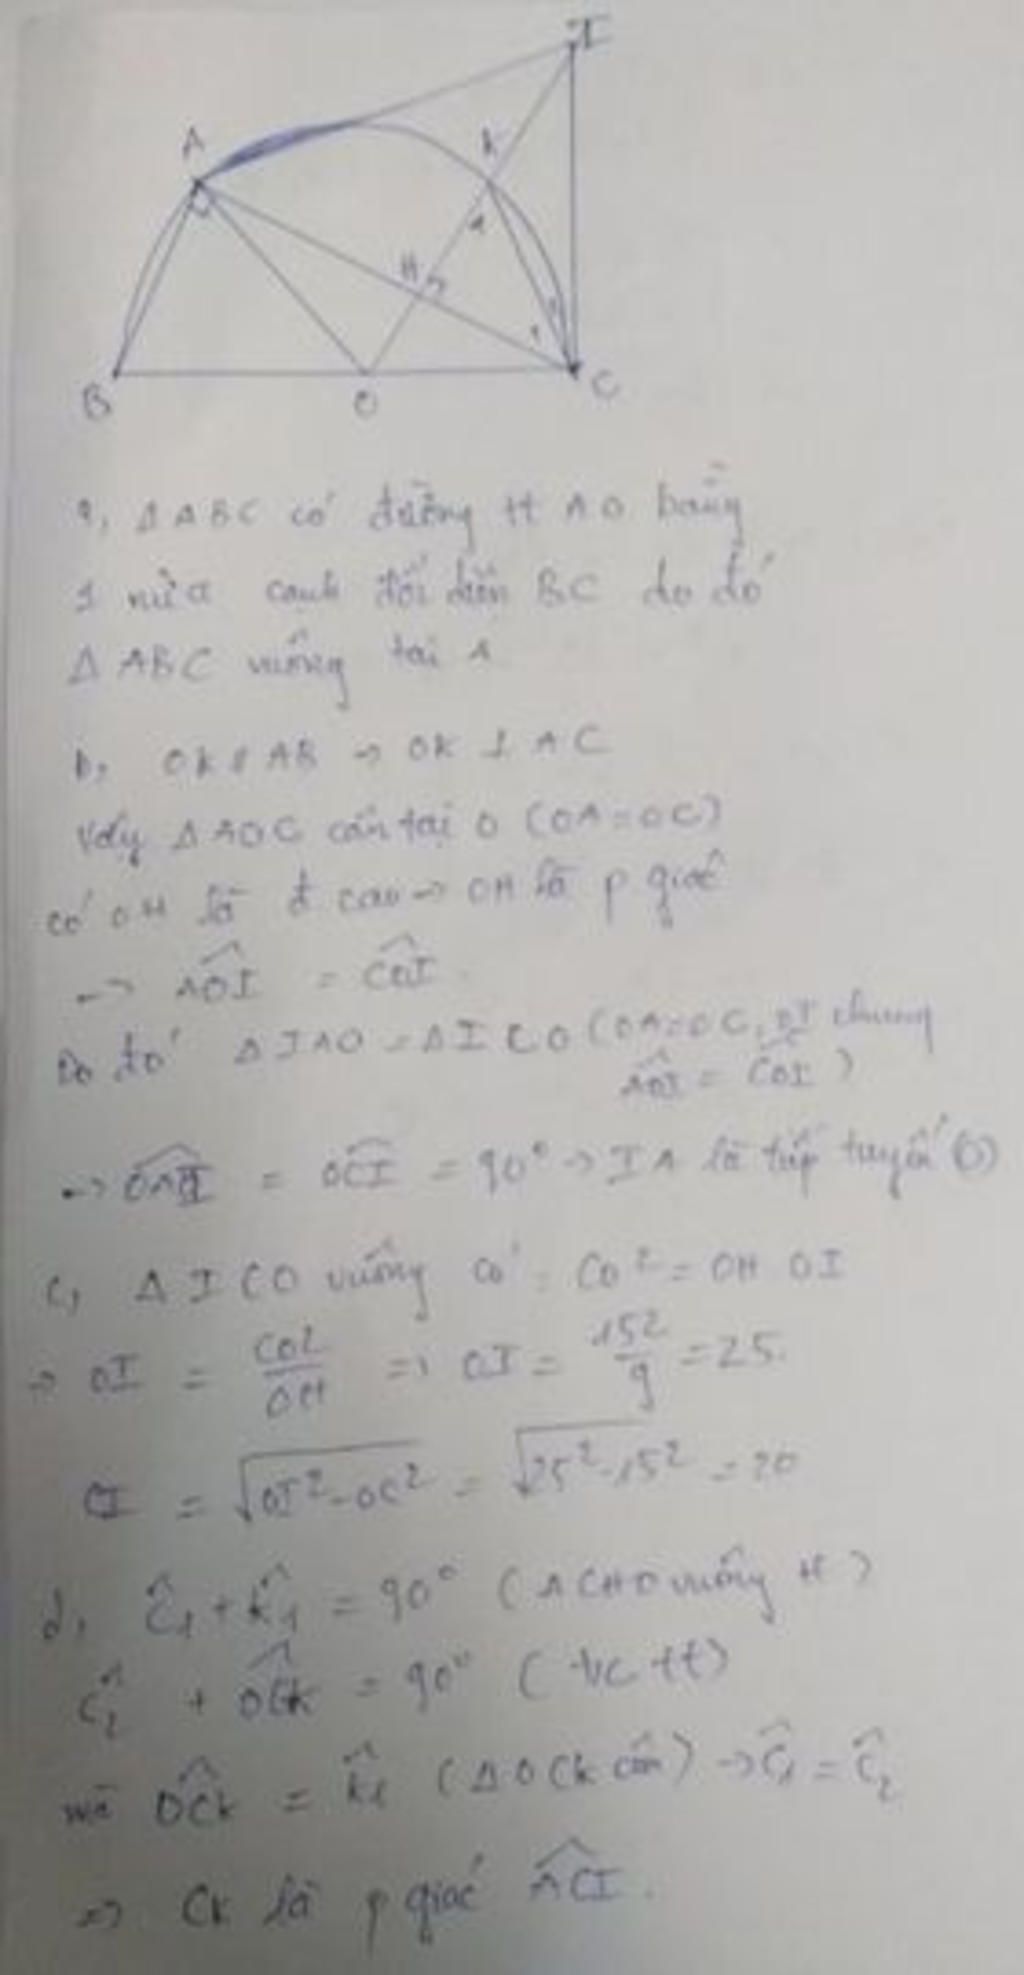 I
A
K
1
H
1
2
B
O
C
a, Δ ABC có đường tt AO bằng
1 nửa cạnh đối diện BC do đó
Δ ABC vuông tại A
b, OK // AB → OK ⊥ AC
Vậy Δ AOC cân tại O (OA = OC)
có OH là đ cao → OH là p giác
→ AOI = COI.
Do đó Δ IAO = Δ ICO (OA=OC, OI chung
AOI = COI)
→ OAI = OCI = 90° → IA là tiếp tuyến (O)
c, Δ ICO vuông có: CO² = OH OI
⇒ OI = CO²/OH ⇒ OI = 15²/9 = 25.
CI = √OI² - OC² = √25² - 15² = 20
d, C1 + K1 = 90° (Δ CHO vuông H)
C2 + OCK = 90° (t/c tt)
mà OCK = K1 (Δ OCK cân) → C1 = C2
⇒ CK là p giác ACI.